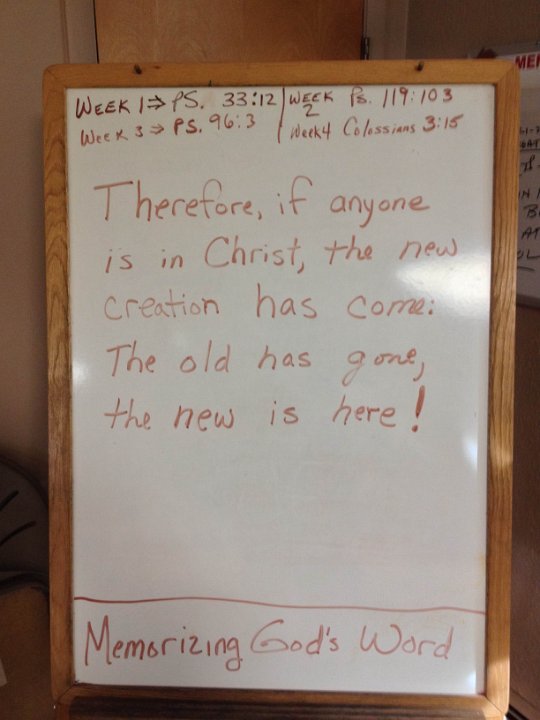 WEEK 1 ⇒ PS. 33:12 | WEEK 2 Ps. 119:103
Week 3 ⇒ PS. 96:3 | Week4 Colossians 3:15
Therefore, if anyone
is in Christ, the new
creation has come:
The old has gone,
the new is here!
Memorizing God's Word